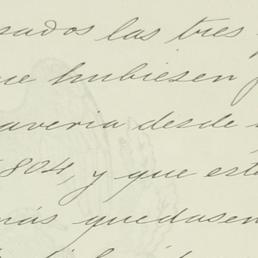 sados las tres
que hubiesen
averia desde
1804, y que est
más quedasen